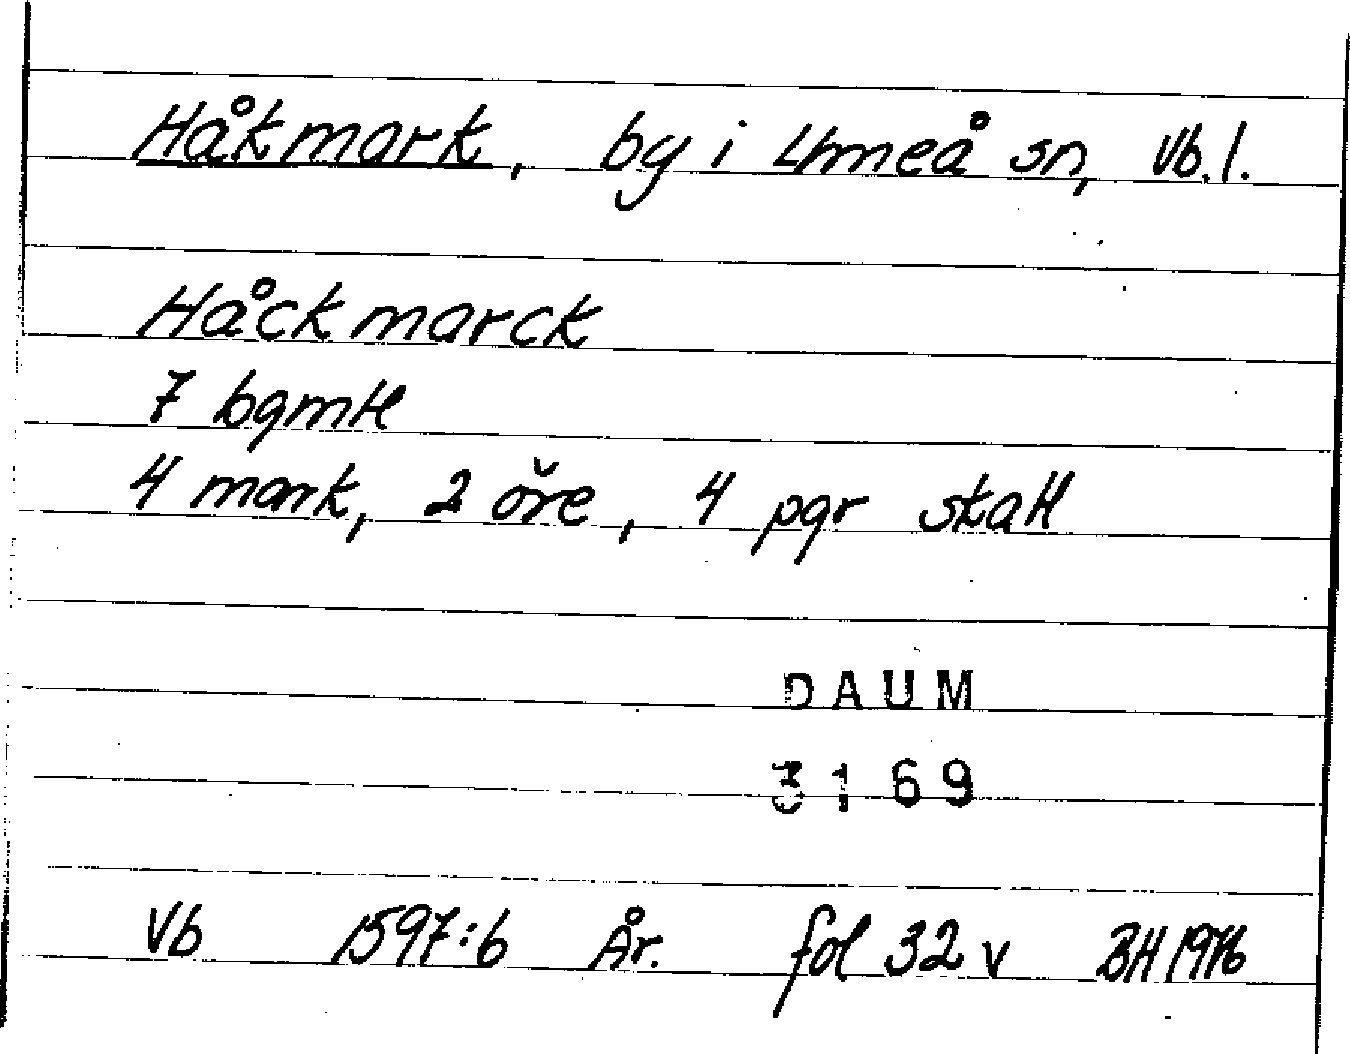 Håkmark, by i Umeå sn, Vb. l.
Håckmarck
7 bgmtl
4 mark, 2 öre, 4 pgr skatt
DAUM
3169
Vb 1597:6 År. fol 32 v BH 1976